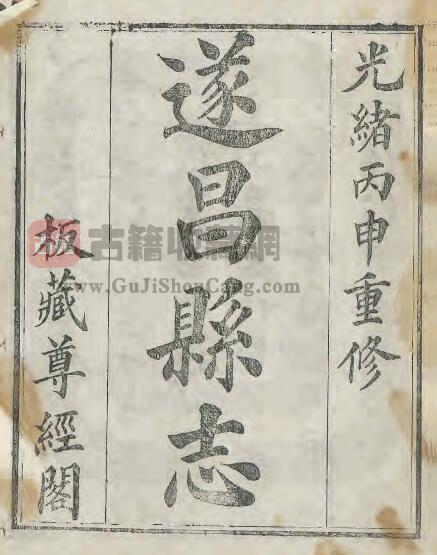 光緒丙申重修
遂昌縣志
板藏尊經閣
古籍收藏網
www.GuJiShouCang.com